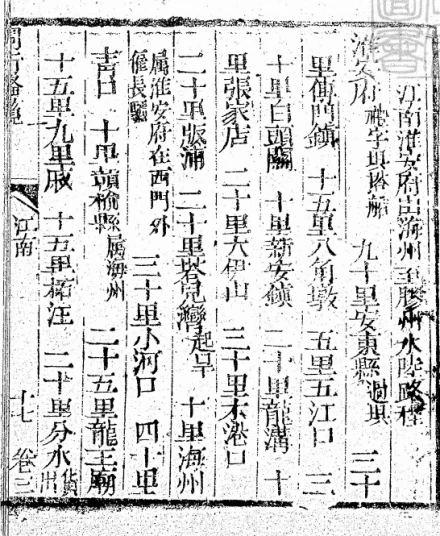 江南淮安府由海州至膠州水陸路程
淮安府 禮字垻搭船 九十里安東縣 過垻 三十
里傅門鎮 十五里八角墩 五里五江口 三
十里白頭關 十里新安鎮 二十里龍溝 十
里張家店 二十里大伊山 三十里木港口
二十里版浦 二十里塔兒灣 起旱 十里海州
屬淮安府在西門外
僱長騾 三十里小河口 四十里
青口 十里贛榆縣 屬海州 二十五里龍王廟
十五里九里 十五里柘汪 二十里分水 貨出
江南 十七 卷三